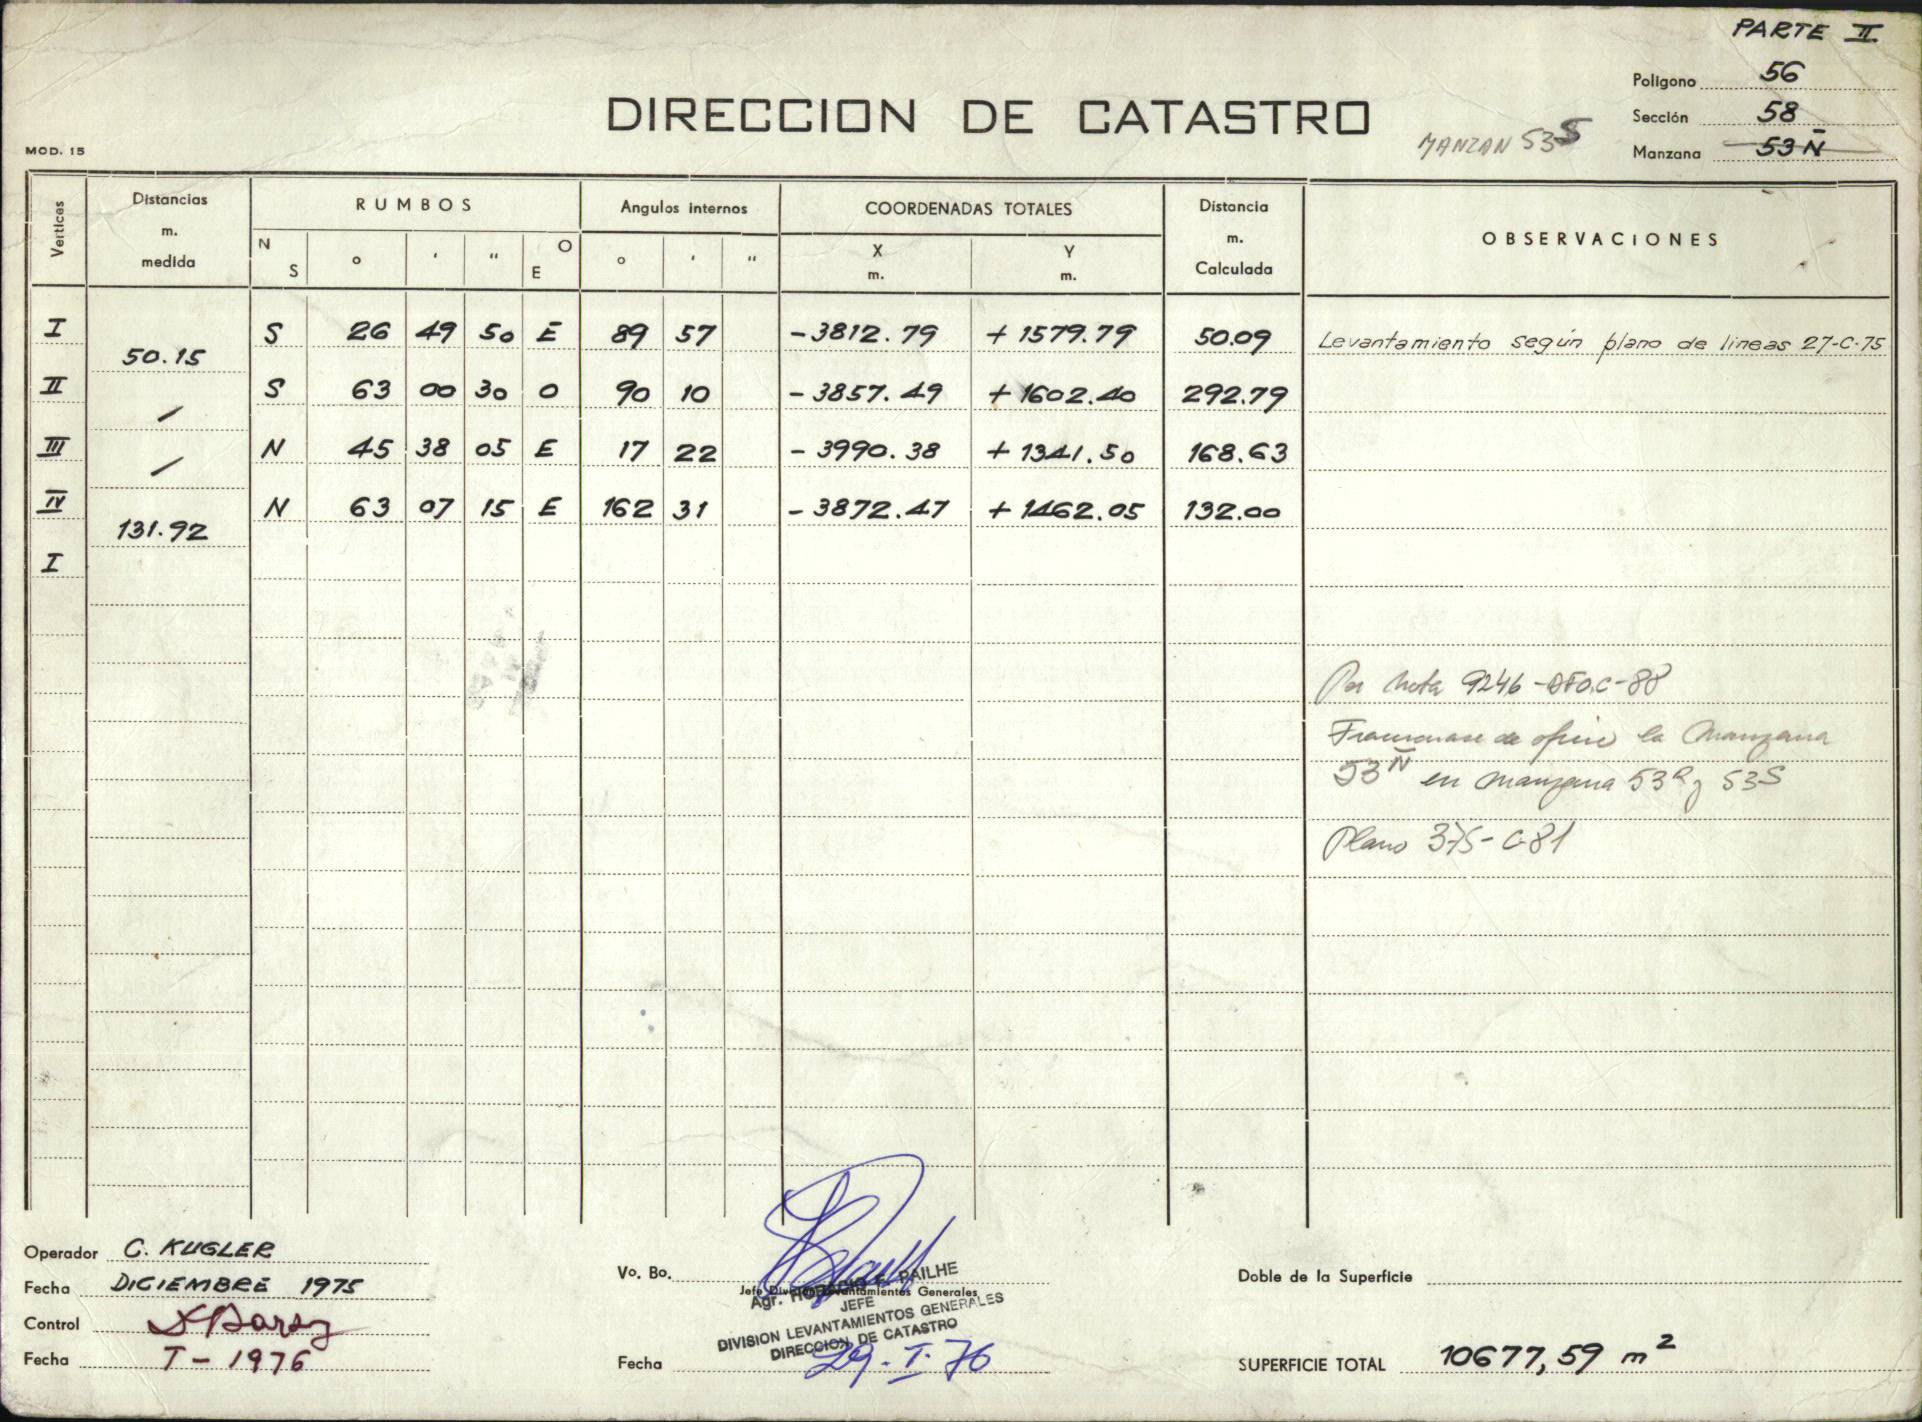 PARTE II
Polígono 56
DIRECCION DE CATASTRO
Sección 58
MANZAN 53S
MOD. 15
Manzana 53Ñ
Vertices
Distancias m. medida
RUMBOS
Angulos internos
COORDENADAS TOTALES
Distancia m. Calculada
OBSERVACIONES
N S o ' " O E
o ' "
X m.
Y m.
I S 26 49 50 E 89 57 -3812.79 +1579.79 50.09 Levantamiento según plano de lineas 27-C-75
50.15
II S 63 00 30 O 90 10 -3857.49 +1602.40 292.79
/
III N 45 38 05 E 17 22 -3990.38 +1341.50 168.63
/
IV N 63 07 15 E 162 31 -3872.47 +1462.05 132.00
131.92
I
Por Nota 9246-DFOC-88
Fraccionase de oficio la Manzana
53Ñ en manzana 53R y 53S
Plano 375-C-81
Operador C. KUGLER
Fecha DICIEMBRE 1975
Control
Fecha I-1976
Vo. Bo.
Jefe División Levantamientos Generales
Agr. HORACIO E. PAILHE
JEFE
DIVISION LEVANTAMIENTOS GENERALES
DIRECCION DE CATASTRO
Fecha 29-I-76
Doble de la Superficie
SUPERFICIE TOTAL 10677,59 m2